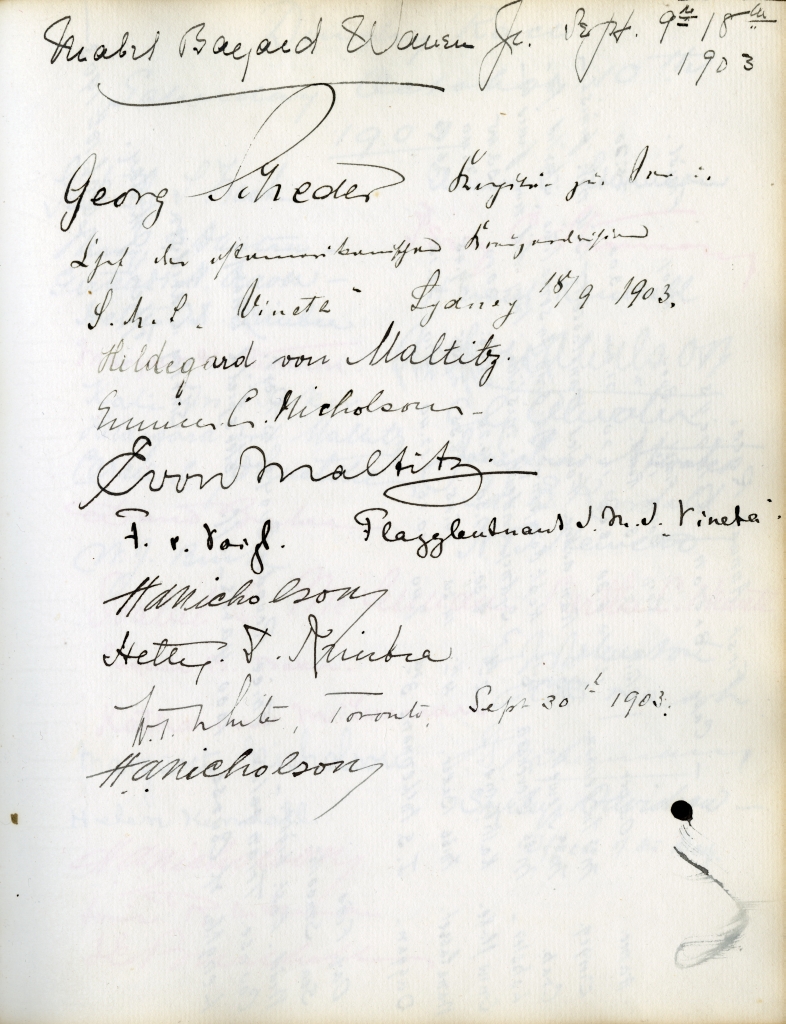 Mabel Bayard Warren Jr. Sept. 9th 18th
1903
Georg Scheder Kapitän zur See u.
Chef der ostamerikanischen Kreuzerdivision
S.M.S. "Vineta" Sydney 18/9 1903.
Hildegard von Maltitz.
C. Nicholson
E von Maltitz.
F. v. Voigt. Flaggleutnant S.M.S. "Vineta".
HANicholson
Hetty. T.
W. T. White, Toronto, Sept 30th 1903.
HANicholson